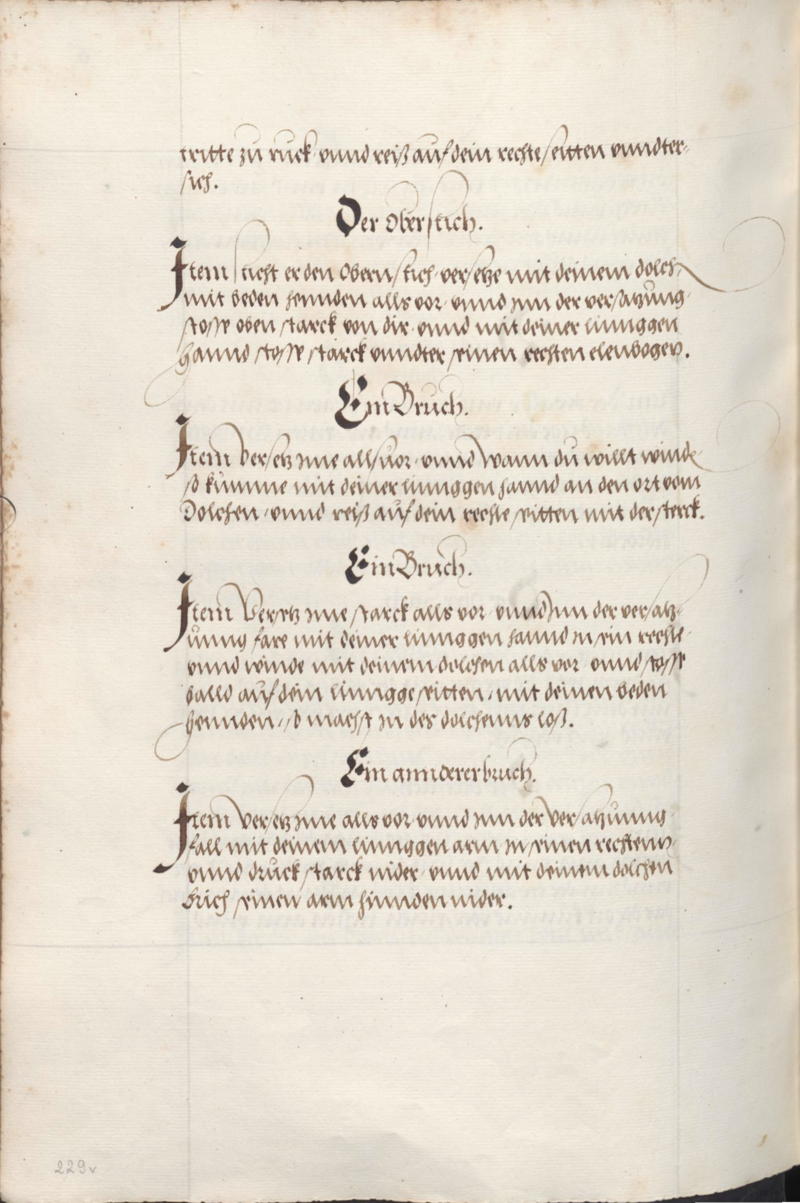 tritte zu ruck vnnd reiß auf dein rechte seitten vnndter
sich.
Der Oberstich.
Item sticht er den Obern stich versetze mit deinem dolch
mit beden hennden alls vor vnnd inn der versatzung
stoss oben starck von dir vnnd mit deiner linnggen
hannd stoss starck vnndter seinen rechten elenbogen.
Ein Bruch.
Item Versetz ime alls vor vnnd wann du willt winde
so kumme mit deiner linnggen hannd an den ort vom
Dolchen vnnd reiß auf dein rechte seitten mit der sterck.
Ein Bruch.
Item Versetz ime starck alls vor vnnd inn der versatz¬
unng fare mit deiner linnggen hannd in sein rechte
vnnd winde mit deinem dolchen alls vor vnnd stoss
balld auf dein linngge seitten mit deinen beden
hennden so machst in des dolchenns loß.
Ein anndererbruch.
Item Versetz ime alls vor vnnd inn der versatzunng
fall mit deinem linnggen arm in seinen rechtenn
vnnd druck starck nider vnnd mit deinem dolchen
brich seinen arm hinnden nider.
229v